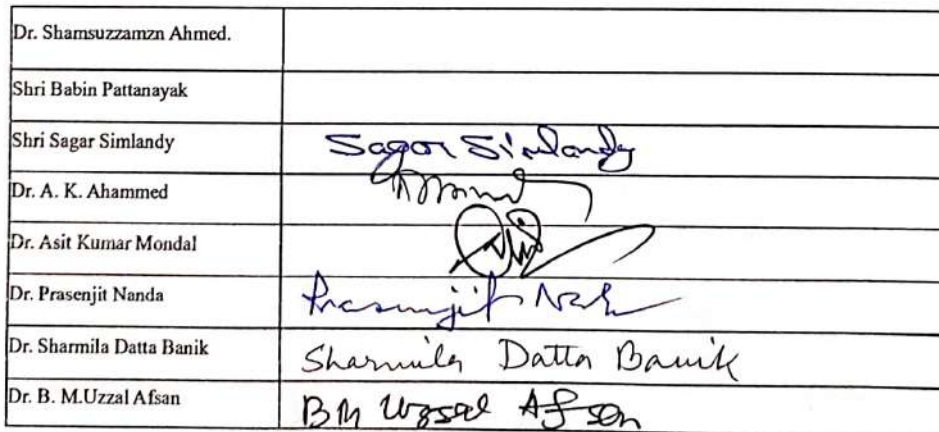 Dr. Shamsuzzamzn Ahmed.
Shri Babin Pattanayak
Shri Sagar Simlandy Sagar Simlandy
Dr. A. K. Ahammed
Dr. Asit Kumar Mondal
Dr. Prasenjit Nanda Prasenjit
Dr. Sharmila Datta Banik Sharmila Datta Banik
Dr. B. M.Uzzal Afsan BM Uzzal Afsan